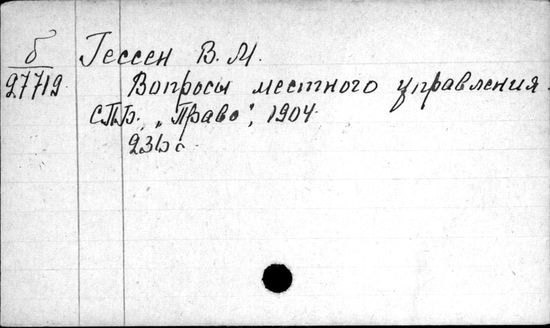 б Гессен В. М.
27719 Вопросы местного управления.
СПБ, "Право", 1904.